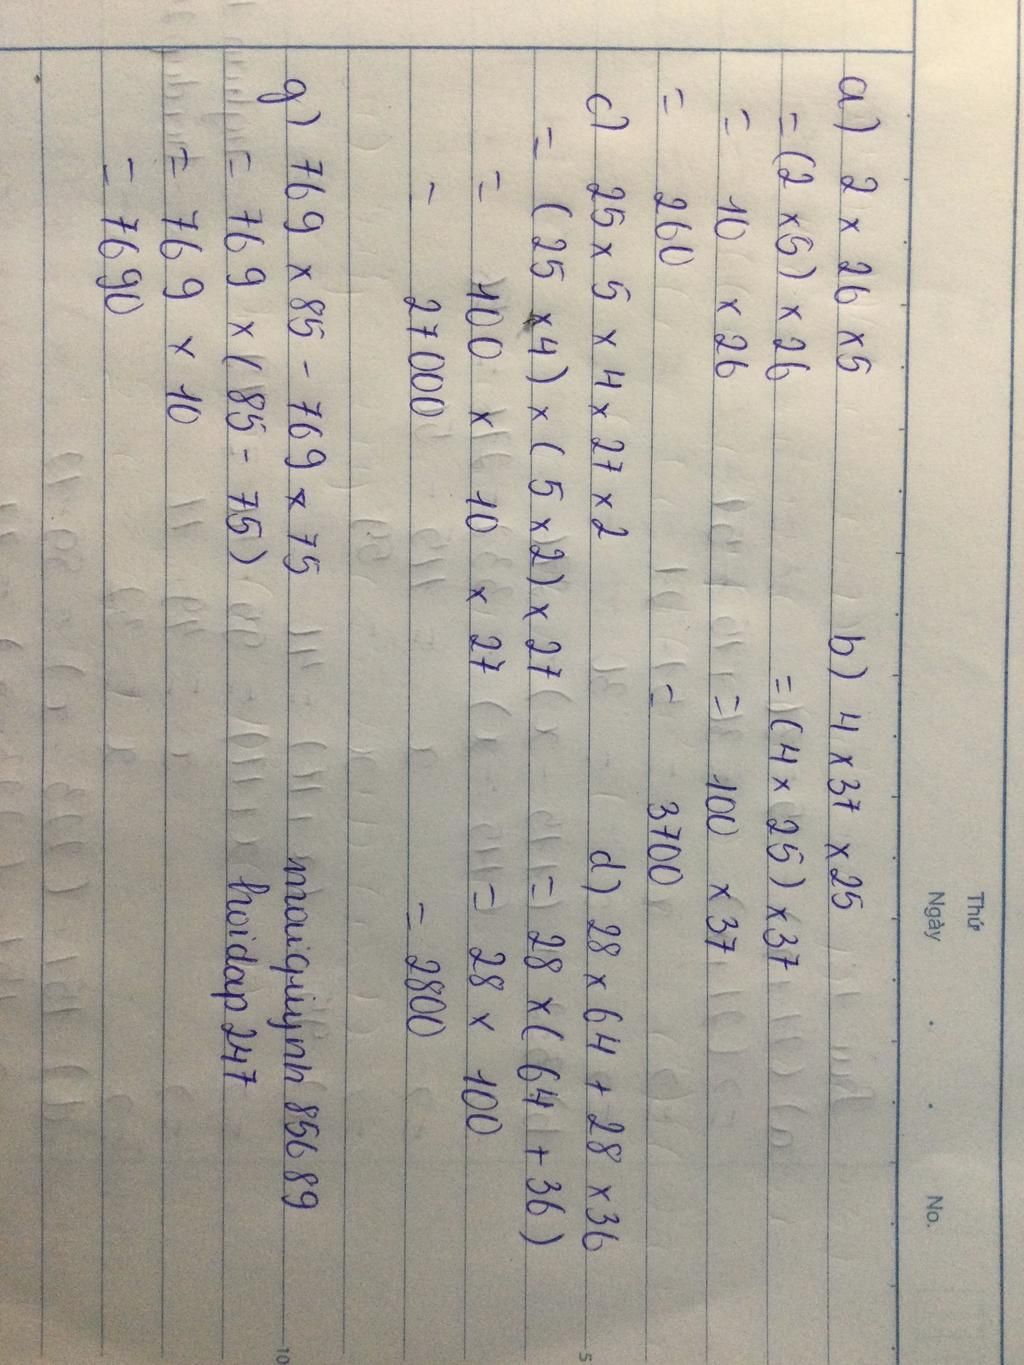 Thứ
Ngày . . No.
a) 2 x 26 x 5
= (2 x 5) x 26
= 10 x 26
= 260
b) 4 x 37 x 25
= (4 x 25) x 37
= 100 x 37
= 3700
c) 25 x 5 x 4 x 27 x 2
= (25 x 4) x (5 x 2) x 27
= 100 x 10 x 27
= 27000
d) 28 x 64 + 28 x 36
= 28 x (64 + 36)
= 28 x 100
= 2800
g) 769 x 85 - 769 x 75
= 769 x (85 - 75)
= 769 x 10
= 7690
maiquynh 85689
hoidap 247
5
10